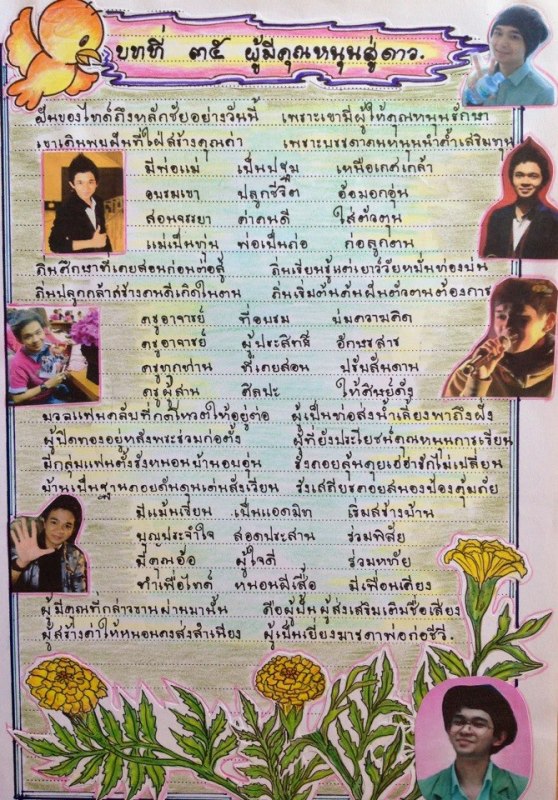 บทที่ ๓๕ ผู้มีคุณหนุนสู่ดาว.
ฝันของไทด์ถึงหลักชัยอย่างวันนี้ เพราะเขามีผู้ให้คุณหนุนรักษา
เขาเดินพบฝันที่ใฝ่สร้างคุณค่า เพราะบรรดาคนหนุนนำค้ำเสริมทุน
มีพ่อแม่ เป็นปฐม เหนือเกศเกล้า
อบรมเขา ปลูกชีวิต อ้อมอกอุ่น
สอนจรรยา ค่าคนดี ใส่ตัวตุน
แม่เป็นทุน พ่อเป็นก่อ ก่อลูกตน
ถิ่นศึกษาที่เคยสอนก่อนต่อสู้ ถิ่นเรียนรู้แต่เยาว์วัยหมั่นท่องบ่น
ถิ่นปลูกกล้าสร้างคนดีเกิดในตน ถิ่นเริ่มต้นค้นฝันตัวตนต้องการ
ครูอาจารย์ ที่อบรม บ่มความคิด
ครูอาจารย์ ผู้ประสิทธิ์ อักษรสาร
ครูทุกท่าน ที่เคยสอน ปรับสันดาน
ครูผู้สาน ศิลปะ ให้ศิษย์ดัง
มวลแฟนคลับที่กดโหวตให้อยู่ต่อ ผู้เป็นท่อส่งน้ำเลี้ยงพาถึงฝั่ง
ผู้ปิดทองอยู่หลังพระร่วมก่อตั้ง ผู้ที่ยังประโยชน์คุณหนุนการเรียน
มีกลุ่มแฟนตั้งรังหนอนบ้านอบอุ่น รังคอยลุ้นคุยเฮฮารักไม่เปลี่ยน
บ้านเป็นฐานคอยค้ำดุนเด่นสังเวียน รังเสถียรคอยสนองป้องคุ้มภัย
มีแม้นเขียน เป็นแอดมิท เริ่มสร้างบ้าน
บุญประจำใจ สอดประสาน ร่วมพิสัย
มีคุณอ้อ ผู้ใจดี ร่วมหทัย
ทำเพื่อไทด์ หนอนผีเสื้อ มีเพื่อนเคียง
ผู้มีคุณที่กล่าวขานผ่านมานั้น คือผู้ปั้นผู้ส่งเสริมเติมชื่อเสียง
ผู้สร้างค่าให้หนอนดงส่งสำเนียง ผู้เป็นเยี่ยงมารดาพ่อก่อชีวี.